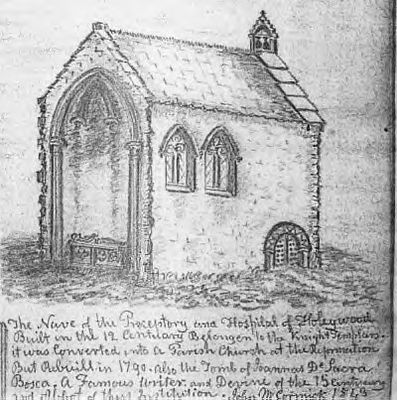 The Nave of the Preceptory and Hospital of Holeywood
Built in the 12 Centuary Belongen to the Knight Templars.
it was Converted into A Parish Church at the Reformation
But Rebuilt in 1790. also the Tomb of Joannas De Sacra
Bosca. A Famous Writer and Devine of the 13 Centuary
and Abbot of this Institution. John McCormick 1843